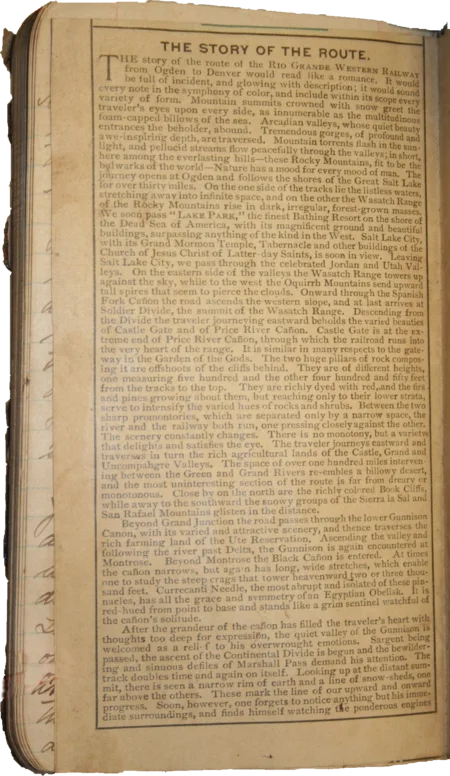 THE STORY OF THE ROUTE.
THE story of the route of the RIO GRANDE WESTERN RAILWAY
from Ogden to Denver would read like a romance. It would
be full of incident, and glowing with description; it would sound
every note in the symphony of color, and include within its scope every
variety of form. Mountain summits crowned with snow greet the
traveler's eyes upon every side, as innumerable as the multitudinous
foam-capped billows of the sea. Arcadian valleys, whose quiet beauty
entrances the beholder, abound. Tremendous gorges, of profound and
awe-inspiring depth, are traversed. Mountain torrents flash in the sun-
light, and pellucid streams flow peacefully through the valleys; in short,
here among the everlasting hills—these Rocky Mountains, fit to be the
bulwarks of the world—Nature has a mood for every mood of man. The
journey opens at Ogden and follows the shores of the Great Salt Lake
for over thirty miles. On the one side of the tracks lie the listless waters,
stretching away into infinite space, and on the other the Wasatch Range
of the Rocky Mountains rise in dark, irregular, forest-grown masses.
We soon pass "LAKE PARK," the finest Bathing Resort on the shore of
the Dead Sea of America, with its magnificent ground and beautiful
buildings, surpassing anything of the kind in the West. Salt Lake City,
with its Grand Mormon Temple, Tabernacle and other buildings of the
Church of Jesus Christ of Latter-day Saints, is soon in view. Leaving
Salt Lake City, we pass through the celebrated Jordan and Utah Val-
leys. On the eastern side of the valleys the Wasatch Range towers up
against the sky, while to the west the Oquirrh Mountains send upward
tall spires that seem to pierce the clouds. Onward through the Spanish
Fork Cañon the road ascends the western slope, and at last arrives at
Soldier Divide, the summit of the Wasatch Range. Descending from
the Divide the traveler journeying eastward beholds the varied beauties
of Castle Gate and of Price River Cañon. Castle Gate is at the ex-
treme end of Price River Cañon, through which the railroad runs into
the very heart of the range. It is similar in many respects to the gate-
way in the Garden of the Gods. The two huge pillars of rock compos-
ing it are offshoots of the cliffs behind. They are of different heights,
one measuring five hundred and the other four hundred and fifty feet
from the tracks to the top. They are richly dyed with red, and the firs
and pines growing about them, but reaching only to their lower strata,
serve to intensify the varied hues of rocks and shrubs. Between the two
sharp promontories, which are separated only by a narrow space, the
river and the railway both run, one pressing closely against the other.
The scenery constantly changes. There is no monotony, but a variety
that delights and satisfies the eye. The traveler journeys eastward and
traverses in turn the rich agricultural lands of the Castle, Grand and
Uncompahgre Valleys. The space of over one hundred miles interven-
ing between the Green and Grand Rivers resembles a billowy desert,
and the most uninteresting section of the route is far from dreary or
monotonous. Close by on the north are the richly colored Book Cliffs,
while away to the southward the snowy groups of the Sierra la Sal and
San Rafael Mountains glisten in the distance.
Beyond Grand Junction the road passes through the lower Gunnison
Canon, with its varied and attractive scenery, and thence traverses the
rich farming land of the Ute Reservation. Ascending the valley and
following the river past Delta, the Gunnison is again encountered at
Montrose. Beyond Montrose the Black Cañon is entered. At times
the cañon narrows, but again has long, wide stretches, which enable
one to study the steep crags that tower heavenward two or three thou-
sand feet. Currecanti Needle, the most abrupt and isolated of these pin-
nacles, has all the grace and symmetry of an Egyptian Obelisk. It is
red-hued from point to base and stands like a grim sentinel watchful of
the cañon's solitude.
After the grandeur of the cañon has filled the traveler's heart with
thoughts too deep for expression, the quiet valley of the Gunnison is
welcomed as a relief to his overwrought emotions. Sargent being
passed, the ascent of the Continental Divide is begun and the bewilder-
ing and sinuous defiles of Marshall Pass demand his attention. The
track doubles time and again on itself. Looking up at the distant sum-
mit, there is seen a narrow rim of earth and a line of snow-sheds, one
far above the others. These mark the line of our upward and onward
progress. Soon, however, one forgets to notice anything but his imme-
diate surroundings, and finds himself watching the ponderous engines